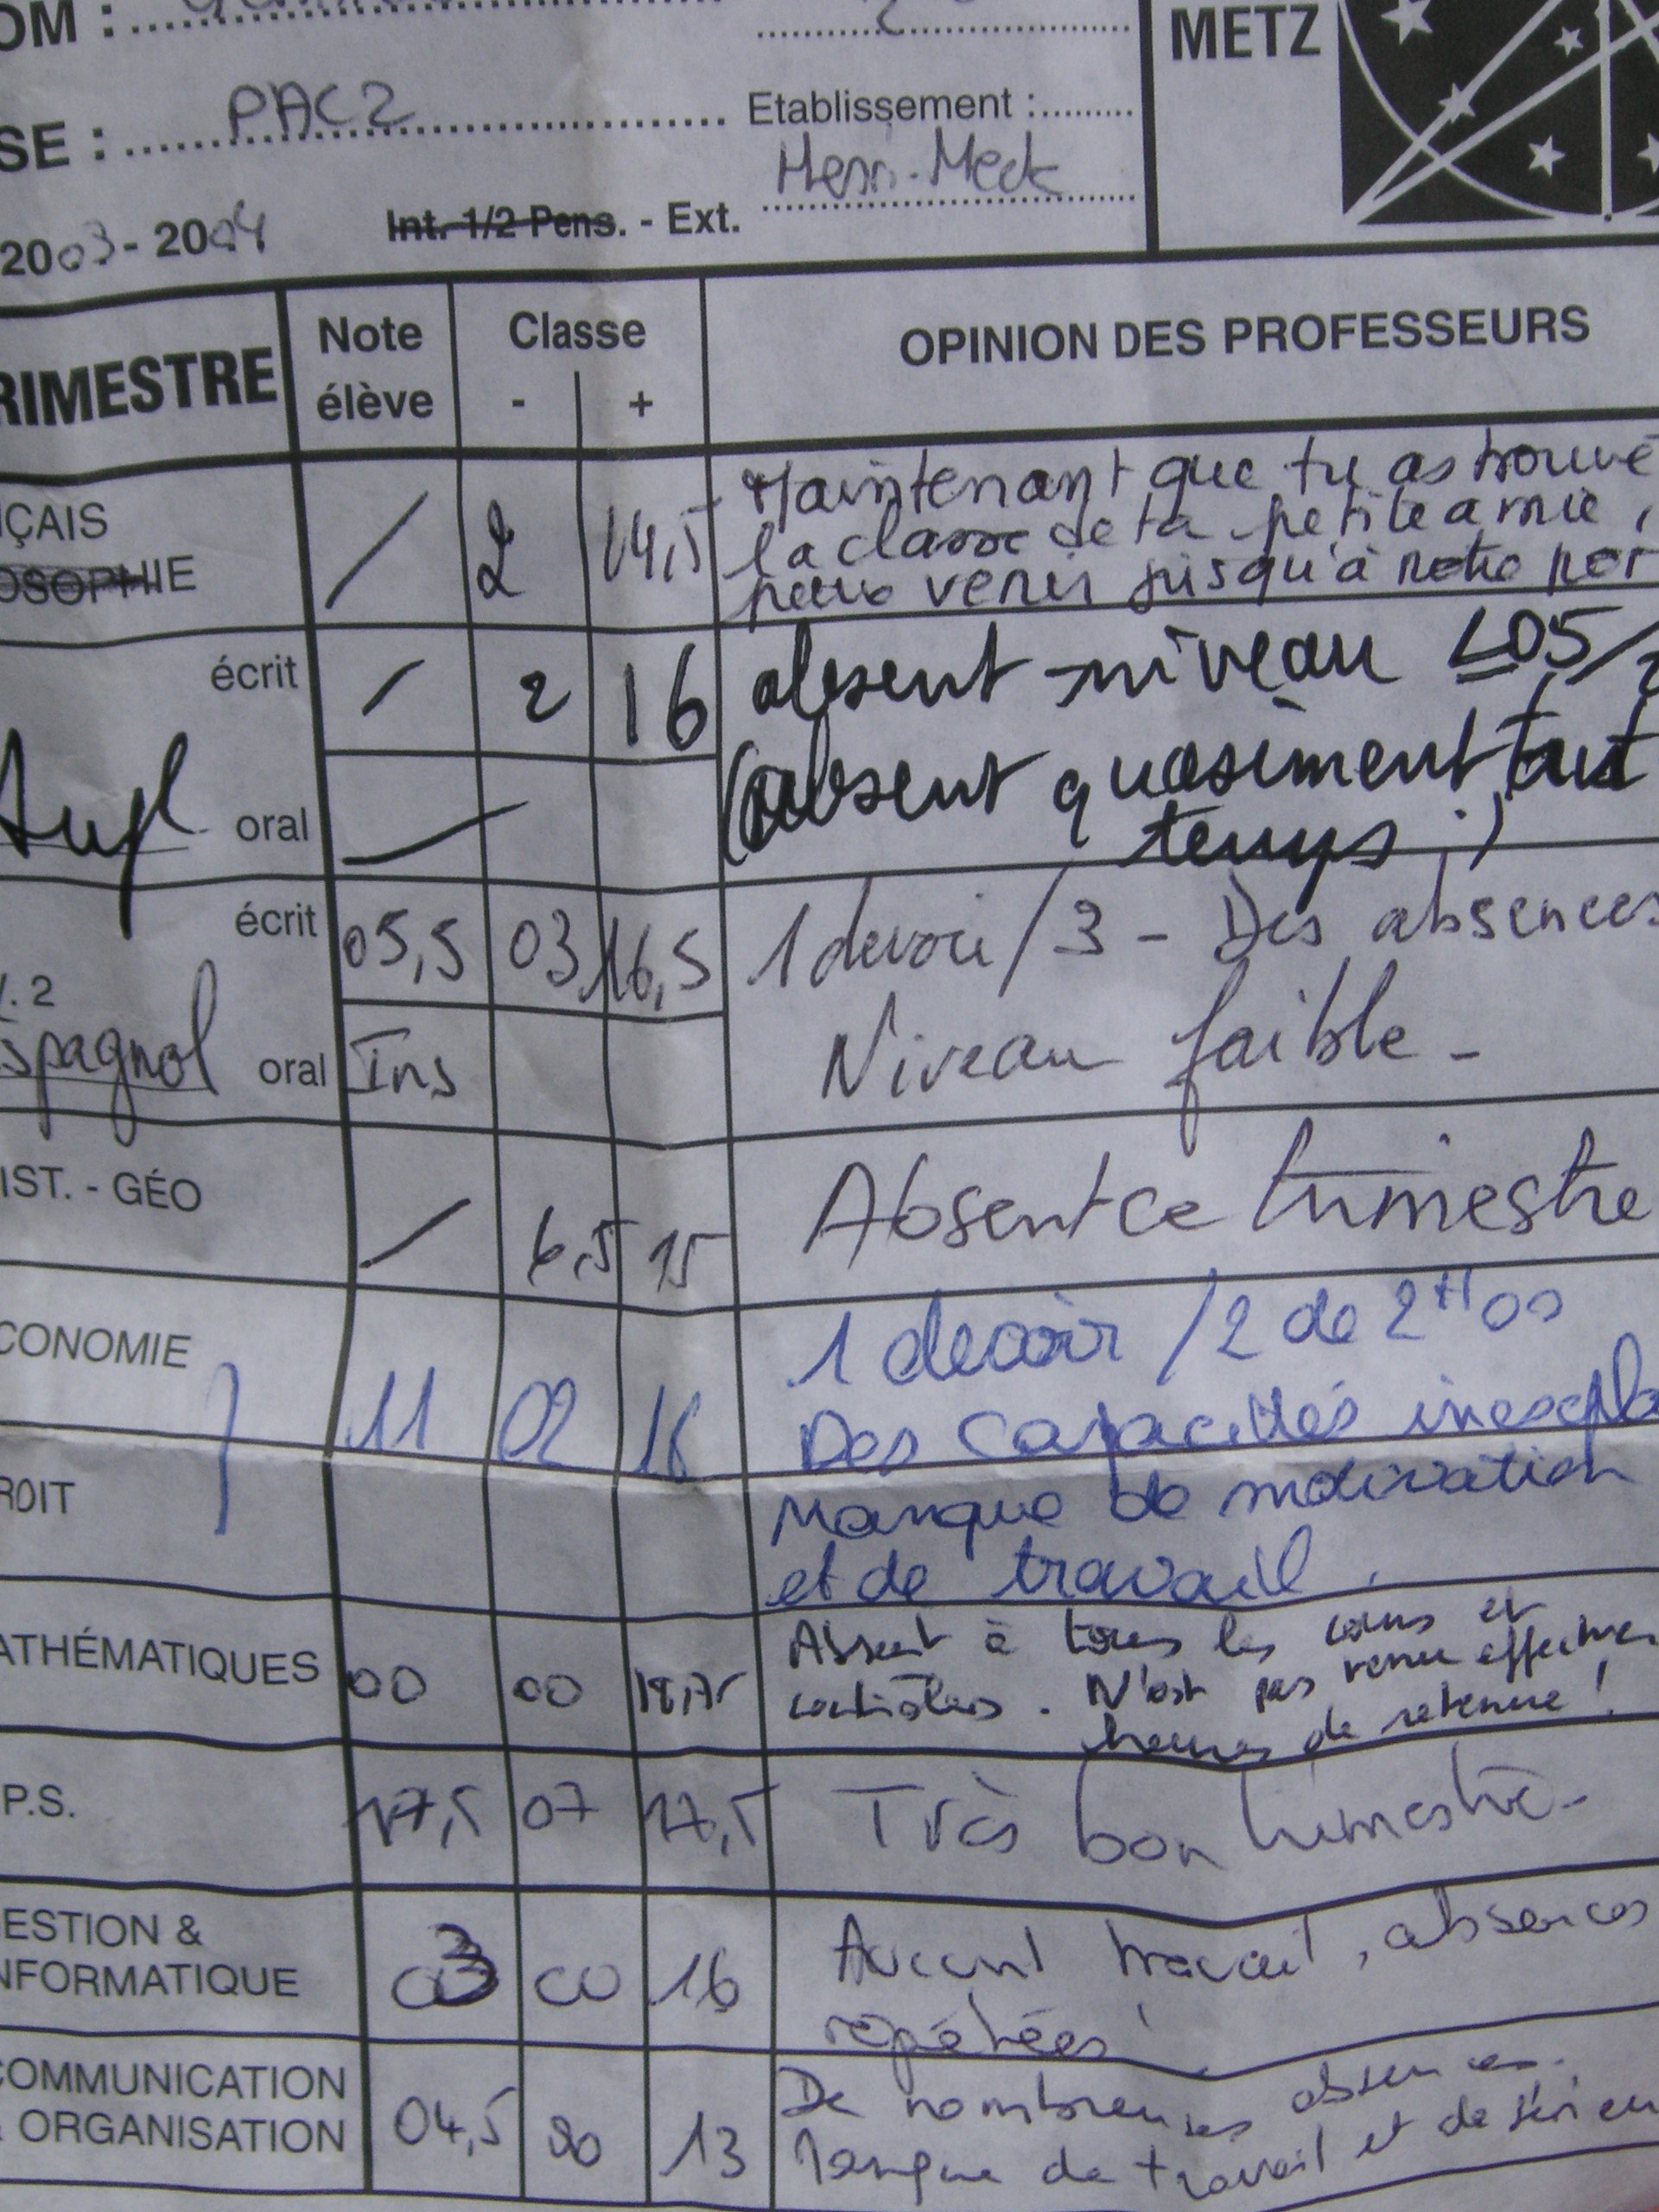 OM :
METZ
SE : PAC2
Etablissement :
Henri-Meck
2003-2004
Int. 1/2 Pens. - Ext.
RIMESTRE
Note élève
Classe
- +
OPINION DES PROFESSEURS
ÇAIS
OSOPHIE
/ 2 14,5
Maintenant que tu as trouvé
la classe de ta petite amie,
peux venir jusqu'à notre por
écrit / 2 16 absent niveau ≤05/2
Angl oral
(absent quasiment tout
temps !)
écrit 05,5 03 16,5 1 devoir/3 - Des absences
. 2
spagnol oral Ins
Niveau faible -
IST. - GÉO / 6,5 15 Absent ce trimestre
CONOMIE
ROIT
11 02 16
1 devoir /2 de 2H 00
Des capacités inexplo
Manque de motivation
et de travail.
ATHÉMATIQUES 00 00 18,75
Absent à tous les cours et
contrôles. N'est pas venu effectuer
heures de retenue !
P.S. 17,5 07 17,5 Très bon trimestre-
ESTION &
NFORMATIQUE
03 00 16
Aucun travail, absences
répétées !
COMMUNICATION
ORGANISATION
04,5 00 13
De nombreuses absences.
Manque de travail et de sérieu